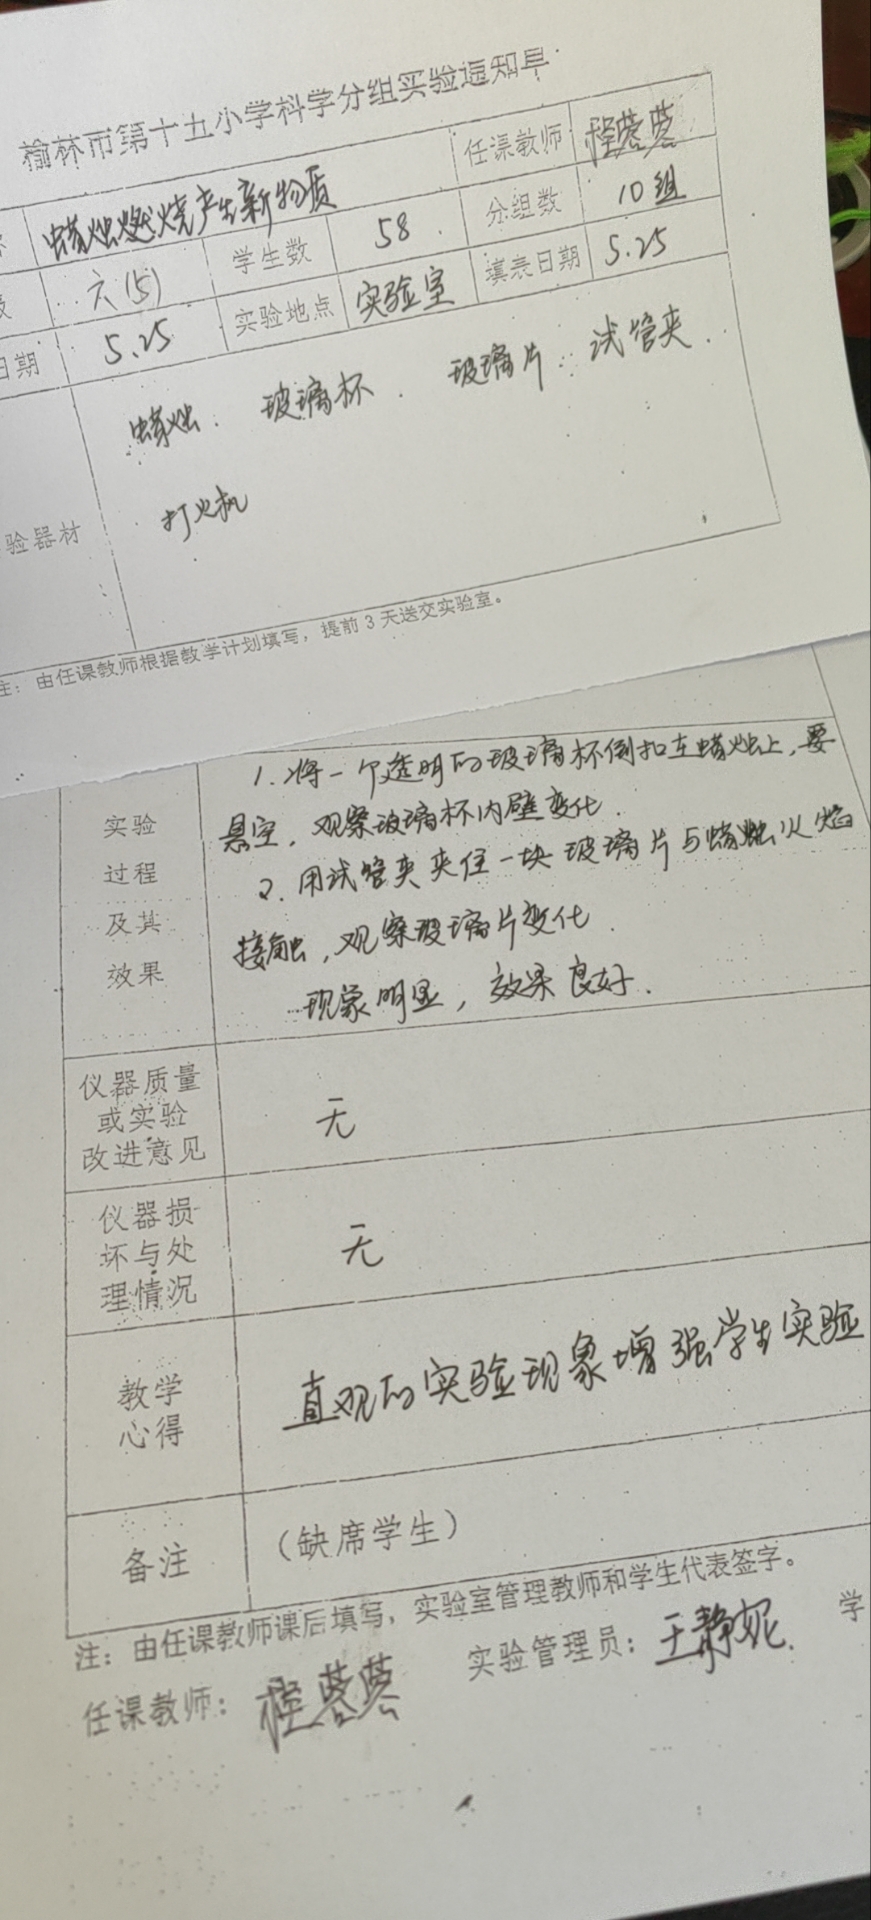 榆林市第十五小学科学分组实验通知单
蜡烛燃烧产生新物质 任课教师 程蓉蓉
六(5) 学生数 58 分组数 10组
日期 5.25 实验地点 实验室 填表日期 5.25
验器材 蜡烛. 玻璃杯. 玻璃片. 试管夹.
打火机
注：由任课教师根据教学计划填写，提前3天送交实验室。
实验
过程
及其
效果
1. 将一个透明的玻璃杯倒扣在蜡烛上，要
悬空，观察玻璃杯内壁变化.
2. 用试管夹夹住一块玻璃片与蜡烛火焰
接触，观察玻璃片变化.
现象明显，效果良好.
仪器质量
或实验
改进意见
无
仪器损
坏与处
理情况
无
教学
心得
直观的实验现象增强学生实验
备注 （缺席学生）
注：由任课教师课后填写，实验室管理教师和学生代表签字。
任课教师： 程蓉蓉 实验管理员： 王静妮. 学